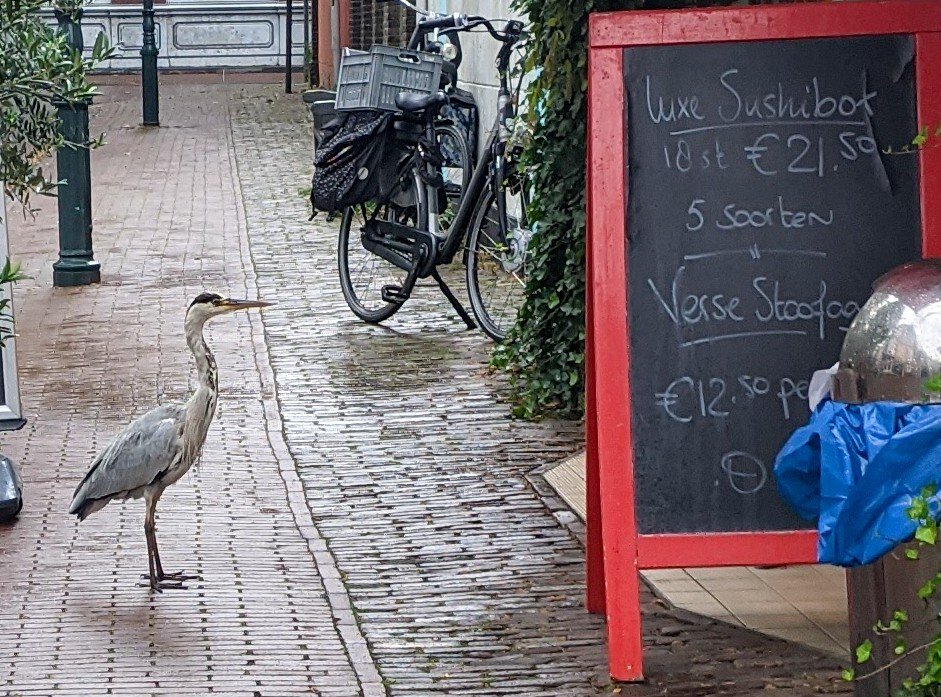 Luxe Sushibot
18st €21.50
5 soorten
"
Verse Stoofaa
€12.50 pe